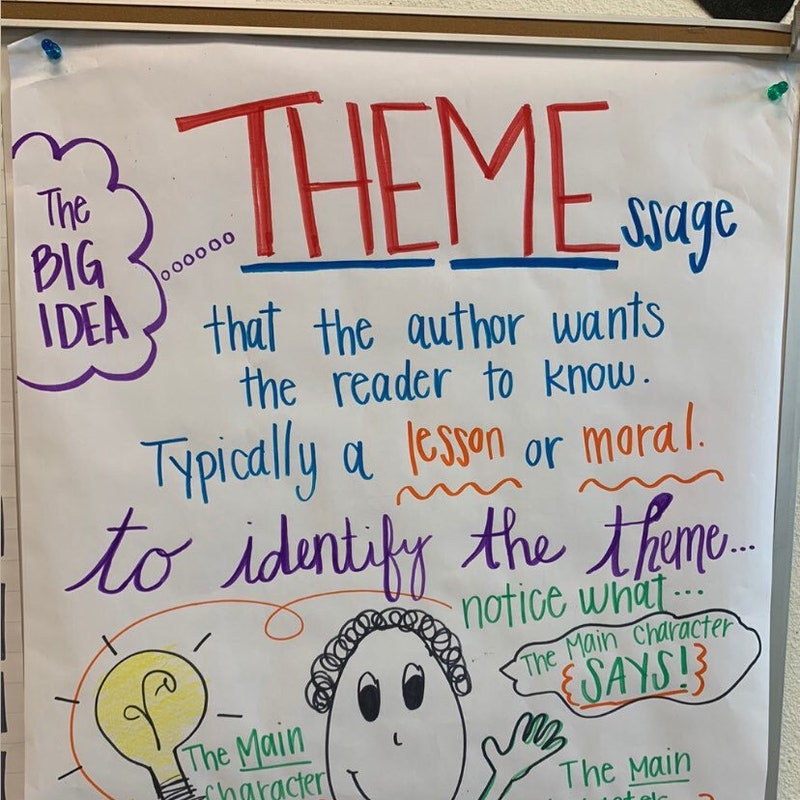 The
BIG
IDEA
THEMEssage
that the author wants
the reader to know.
Typically a lesson or moral.
to identify the theme...
notice what...
The Main Character
{SAYS!}
The Main
Character
The Main